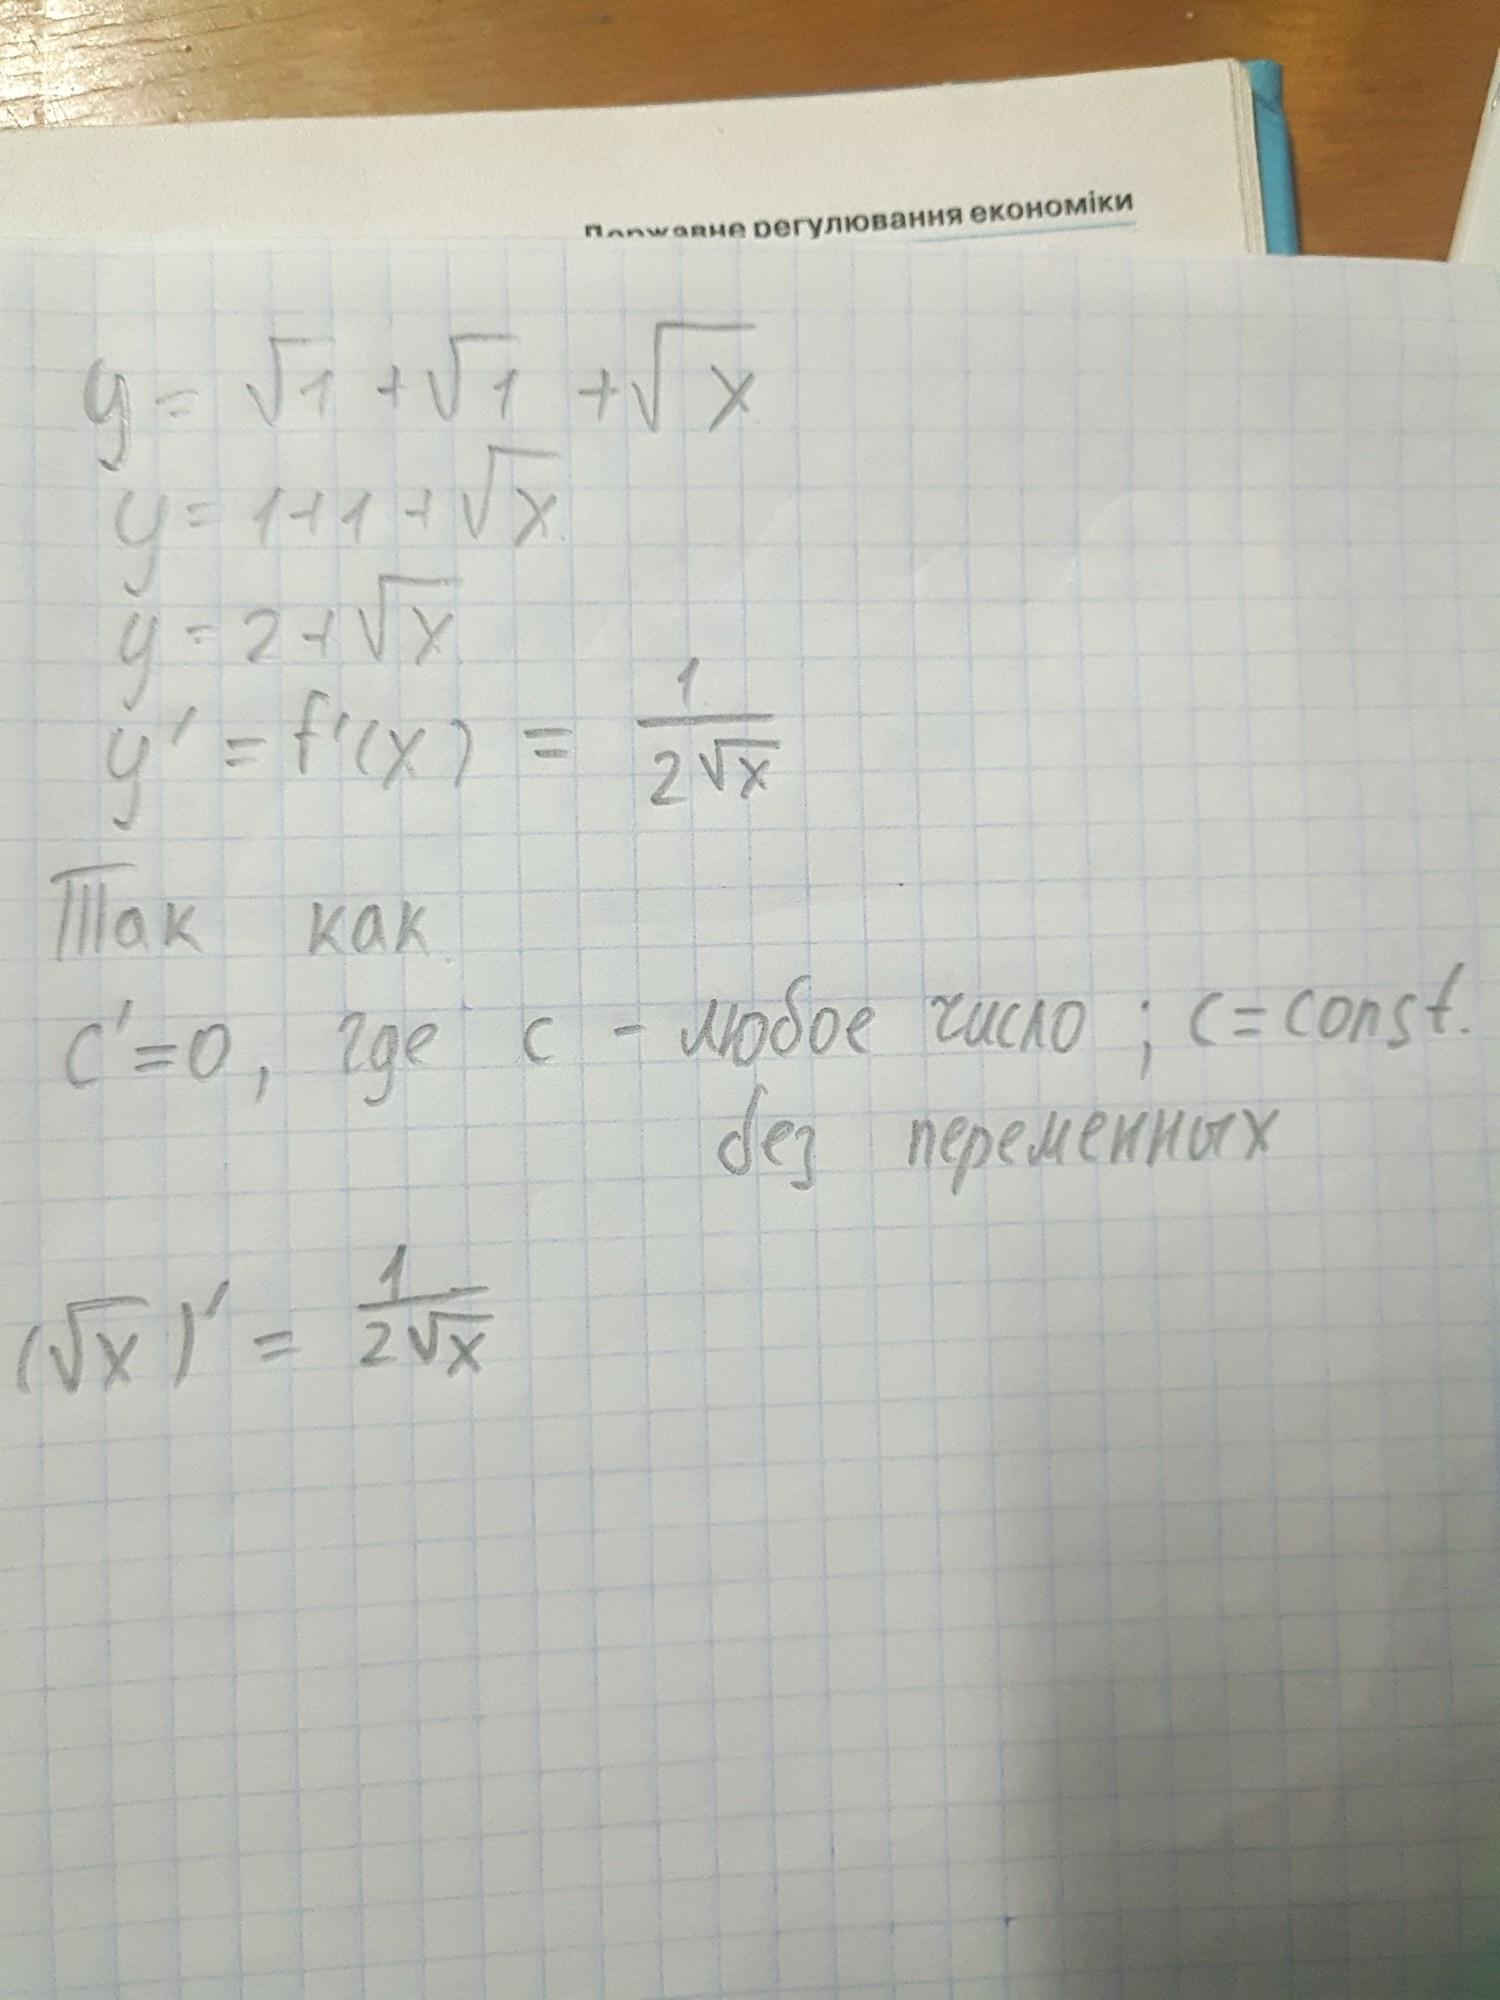 Державне регулювання економіки
y = √1 + √1 + √x
y = 1+1+√x
y = 2+√x
y' = f'(x) = 1/(2√x)
Так как
c'=0, где c - любое число ; c=const.
без переменных
(√x)' = 1/(2√x)